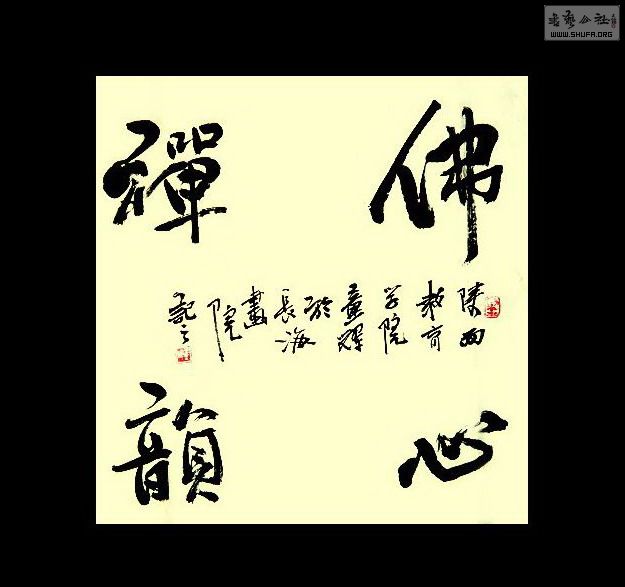 佛心
禪韻
陕西
教育
学院
童輝
於
長海
畫
院
記之
書藝公社
WWW.SHUFA.ORG